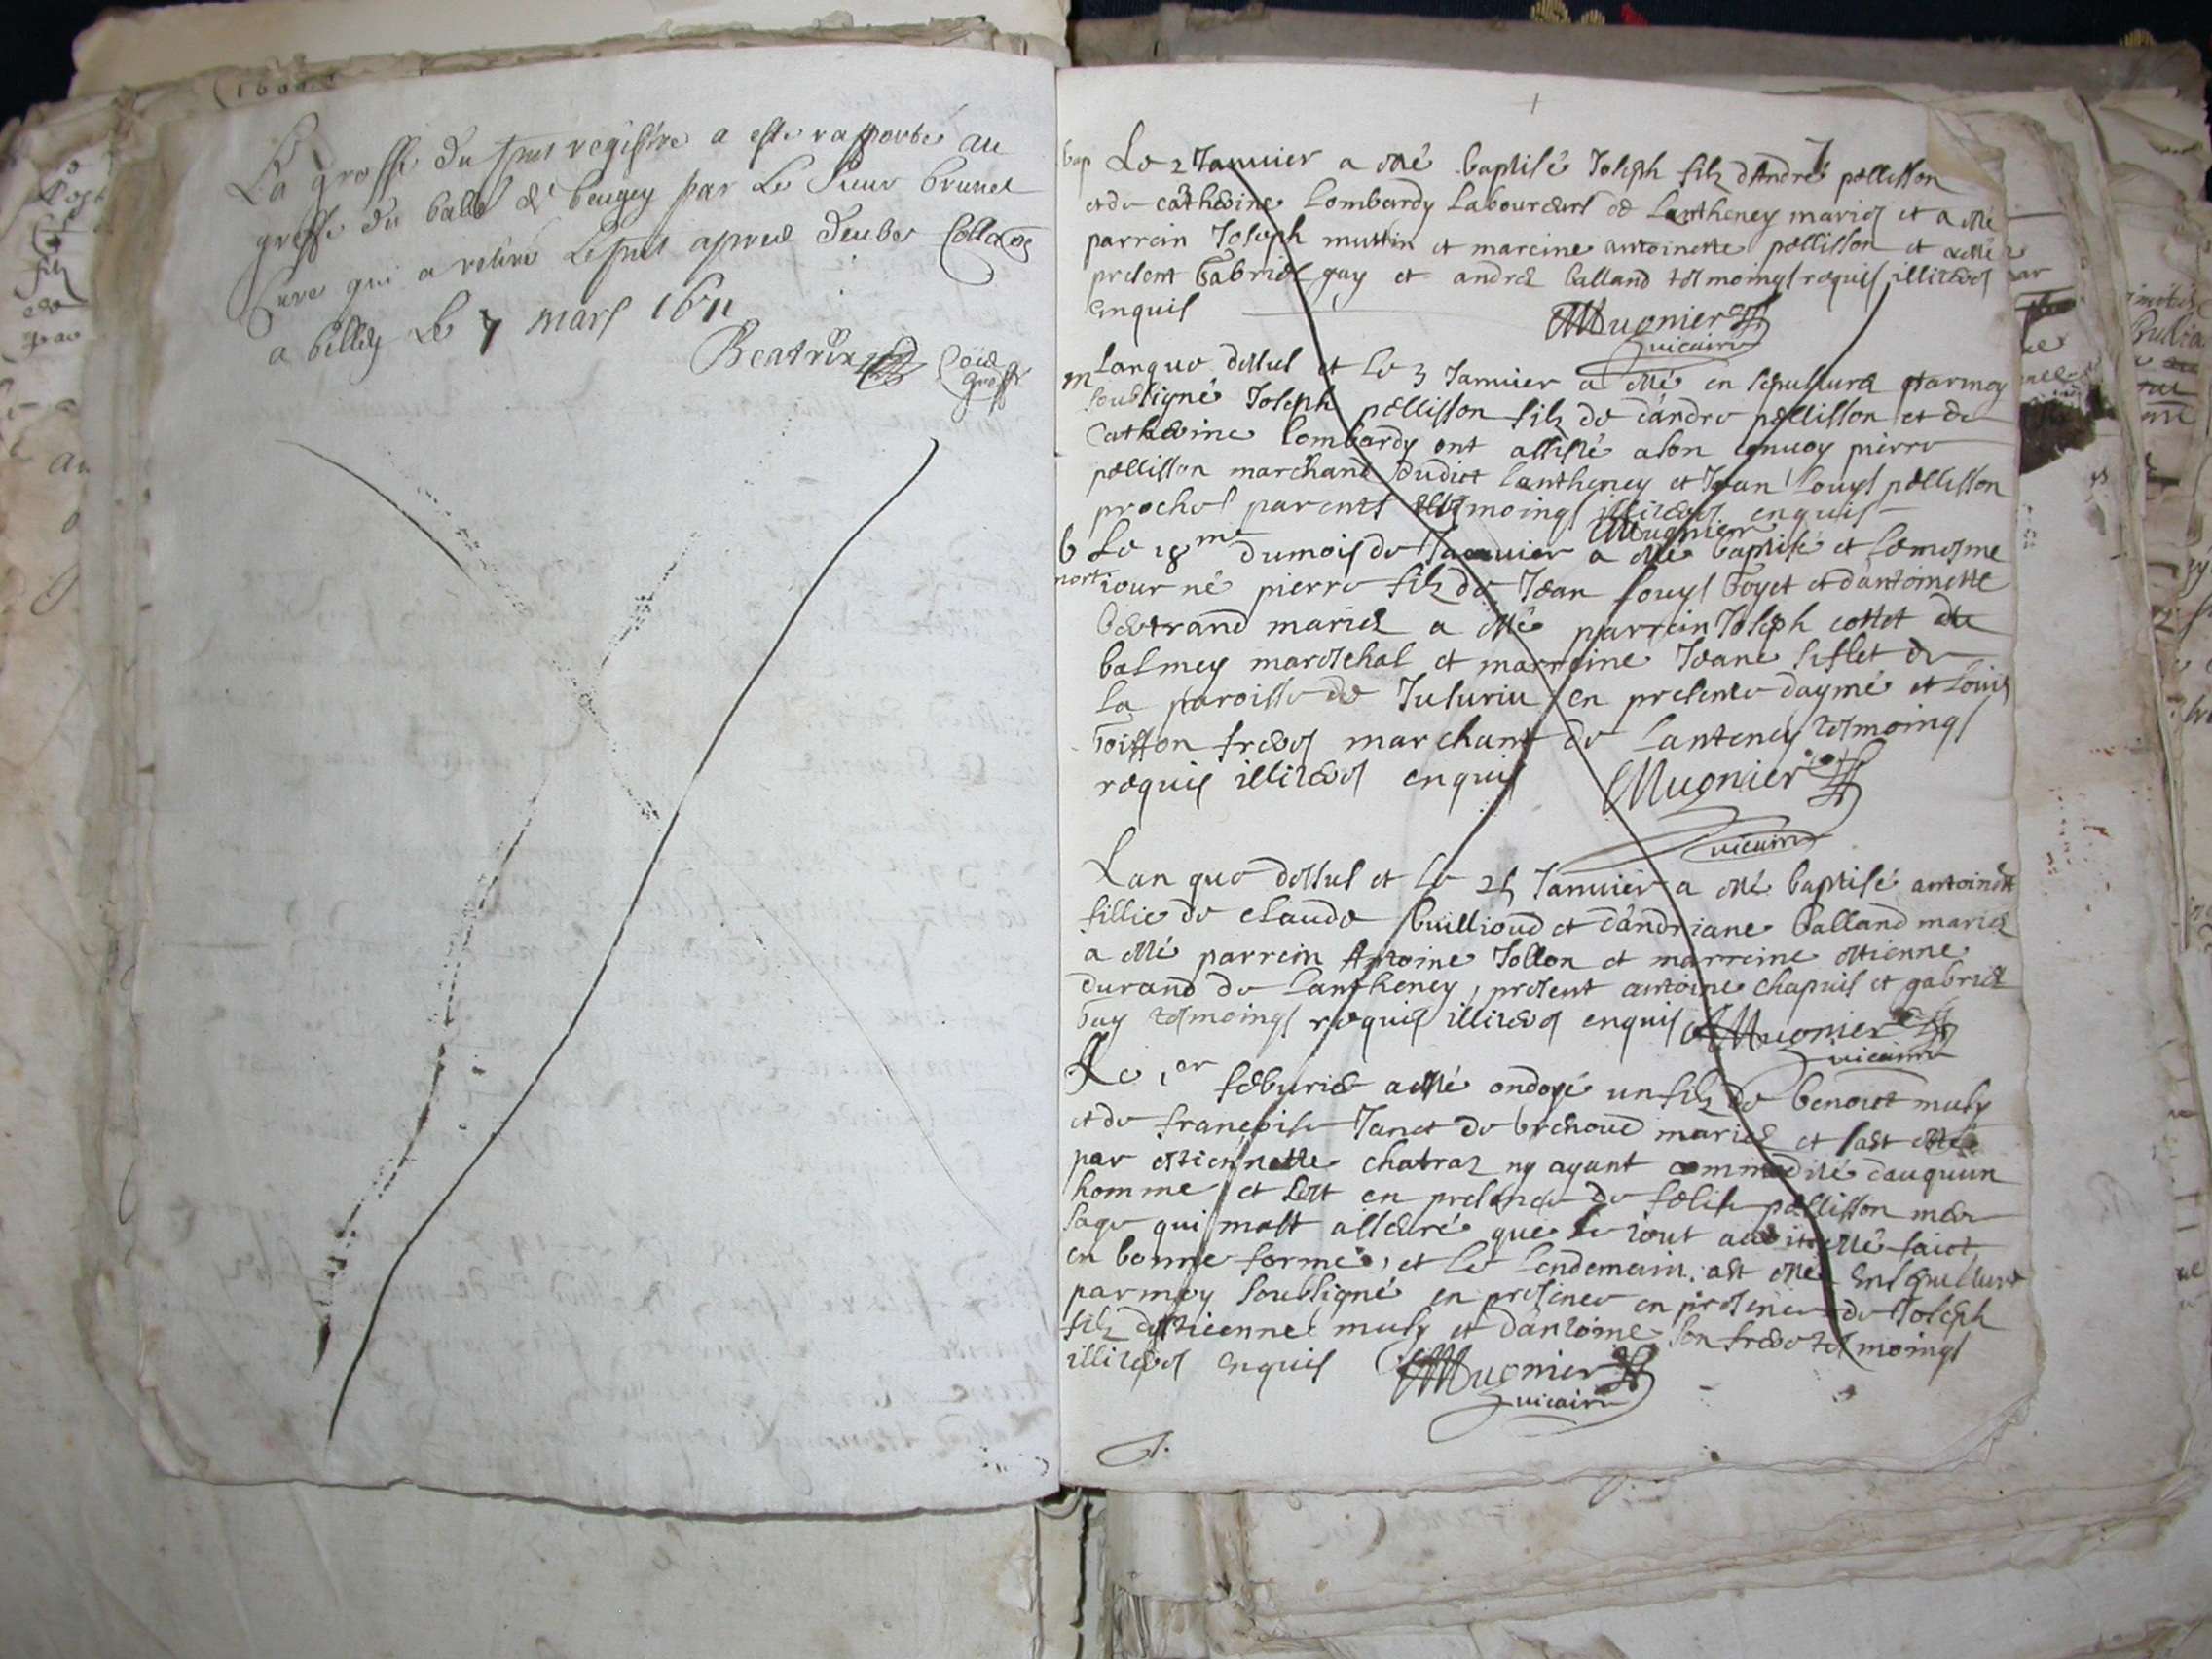 La grosse du pnt registre a este rapportée au
greffe du balle de beugey par Le Sieur brunet
Cure qui a retire Le pnt apres deube Collaon
a belley Le 7 mars 1671
Beatrix
bap Le 2 Januier a esté baptisé Joseph filz dAndré pellisson
et de catherine Lombardy Laboureurs de Lantheney mariez et a esté
parrein Joseph muttin et mareine antoinette pellisson et a esté
present Gabriel guy et andrez balland tesmoings requis illiteres
enquis
Mugnier
vicaire
m Lan que dessus et le 3 Januier a esté en sepulture par moy
soubsigné Joseph pellisson filz de dandre pellisson et de
Catherine Lombardy ont assisté a son conuoy pierre
pellisson marchand dudict Lantheney et Jean Louys pellisson
proches parents tesmoings illiteres enquis
Mugnier
b Le 18me du mois de Januier a esté baptisé et le mesme
mort iour né pierre filz de Jean Louys Goyet et dantoinette
bertrand mariez a esté parrein Joseph cottet de
balmey mareschal et marreine Jeane siflet de
la paroisse de Jusuriu en presence daymé et Louis
Goiffon freres marchant de Lanteney tesmoings
requis illiteres enquis
Mugnier
vicaire
Lan que dessus et le 25 Januier a esté baptisé antoinette
fillie de claude buillioud et dandriane balland mariez
a esté parrein Antoine Jollon et marreine estienne
durand de Lantheney, present antoine chapuis et gabriel
Guy tesmoings requis illiteres enquis Mugnier
vicaire
Le 1er feburier a esté ondoyé un filz de benoict musy
et de françoise Janet de brenoud mariez et last esté
par estiennette chatraz ny ayant commodité dauquun
homme et sest en presence de felise pellisson mere
sage qui mast asseuré que le tout auoit esté faict
en bonne forme, et le lendemain ast esté en sepulture
par moy soubsigné en presence en presence de Joseph
filz destienne musy et dantoine son frere tesmoings
illiteres enquis Mugnier
vicaire